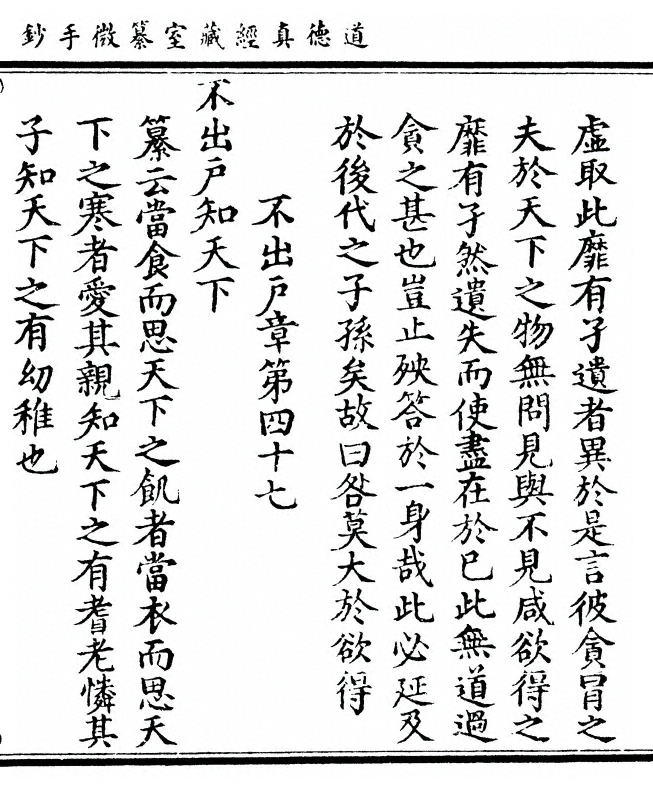 道德真經藏室纂微手鈔
虛取此靡有孑遺者異於是言彼貪冒之
夫於天下之物無問見與不見咸欲得之
靡有孑然遺失而使盡在於已此無道過
貪之甚也豈止殃答於一身哉此必延及
於後代之子孫矣故曰咎莫大於欲得
不出戶章第四十七
不出戶知天下
纂云當食而思天下之飢者當衣而思天
下之寒者愛其親知天下之有耆老憐其
子知天下之有幼稚也